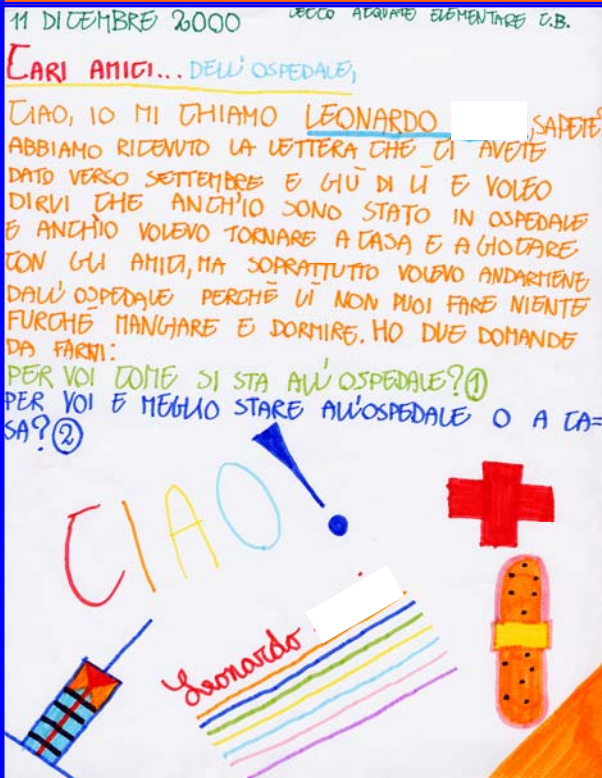 11 DICEMBRE 2000 LECCO ACQUATE ELEMENTARE C.B.
CARI AMICI... DELL'OSPEDALE,
CIAO, IO MI CHIAMO LEONARDO , SAPETE
ABBIAMO RICEVUTO LA LETTERA CHE CI AVETE
DATO VERSO SETTEMBRE E GIÙ DI LÌ E VOLEO
DIRVI CHE ANCH'IO SONO STATO IN OSPEDALE
E ANCH'IO VOLEVO TORNARE A CASA E A GIOCARE
CON GLI AMICI, MA SOPRATTUTTO VOLEVO ANDARMENE
DALL'OSPEDALE PERCHÉ LÌ NON PUOI FARE NIENTE
FURCHÉ MANGIARE E DORMIRE. HO DUE DOMANDE
DA FARVI:
PER VOI COME SI STA ALL'OSPEDALE? 1
PER VOI E MEGLIO STARE ALL'OSPEDALE O A CA=
SA? 2
CIAO!
Leonardo